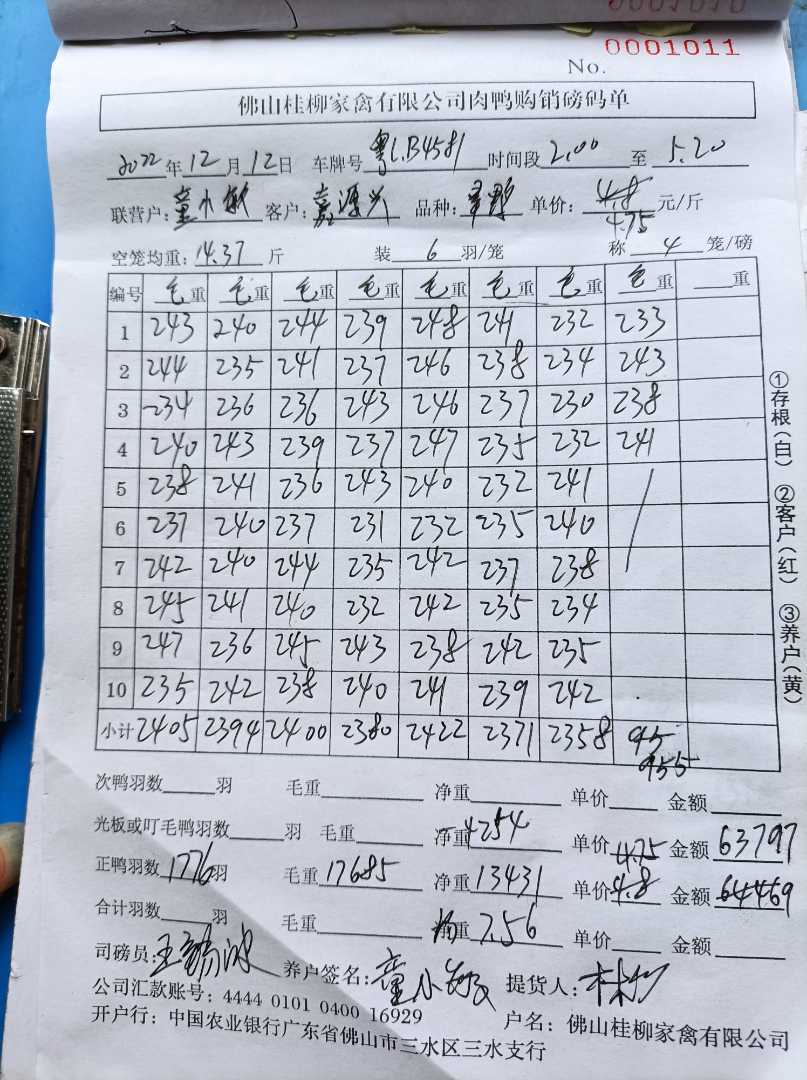 No. 0001011
佛山桂柳家禽有限公司肉鸭购销磅码单
2022年12月12日 车牌号 粤L.B4581 时间段 2.00 至 5.20
联营户:童小敏 客户:嘉源兴 品种: 单价: 4.8 4.75 元/斤
空笼均重:14.37 斤 装 6 羽/笼 称 4 笼/磅
编号 毛重 毛重 毛重 毛重 毛重 毛重 毛重 毛重 重
1 243 240 244 239 248 241 232 233
2 244 235 241 237 246 238 234 243
3 234 236 236 243 246 237 230 238
4 240 243 239 237 247 235 232 241
5 238 241 236 243 240 232 241
6 237 240 237 231 232 235 240
7 242 240 244 235 242 237 238
8 245 241 240 232 242 235 234
9 247 236 245 243 238 242 235
10 235 242 238 240 241 239 242
小计 2405 2394 2400 2380 2422 2371 2358 955
次鸭羽数 羽 毛重 净重 单价 金额
光板或叮毛鸭羽数 羽 毛重 净重 4254 单价 4.75 金额 63797
正鸭羽数 1776 羽 毛重 17685 净重 13431 单价 4.8 金额 64469
合计羽数 羽 毛重 均重 7.56 单价 金额
司磅员: 养户签名:童小敏 提货人:
公司汇款账号:4444 0101 0400 16929 户名:佛山桂柳家禽有限公司
开户行:中国农业银行广东省佛山市三水区三水支行
①存根(白) ②客户(红) ③养户(黄)